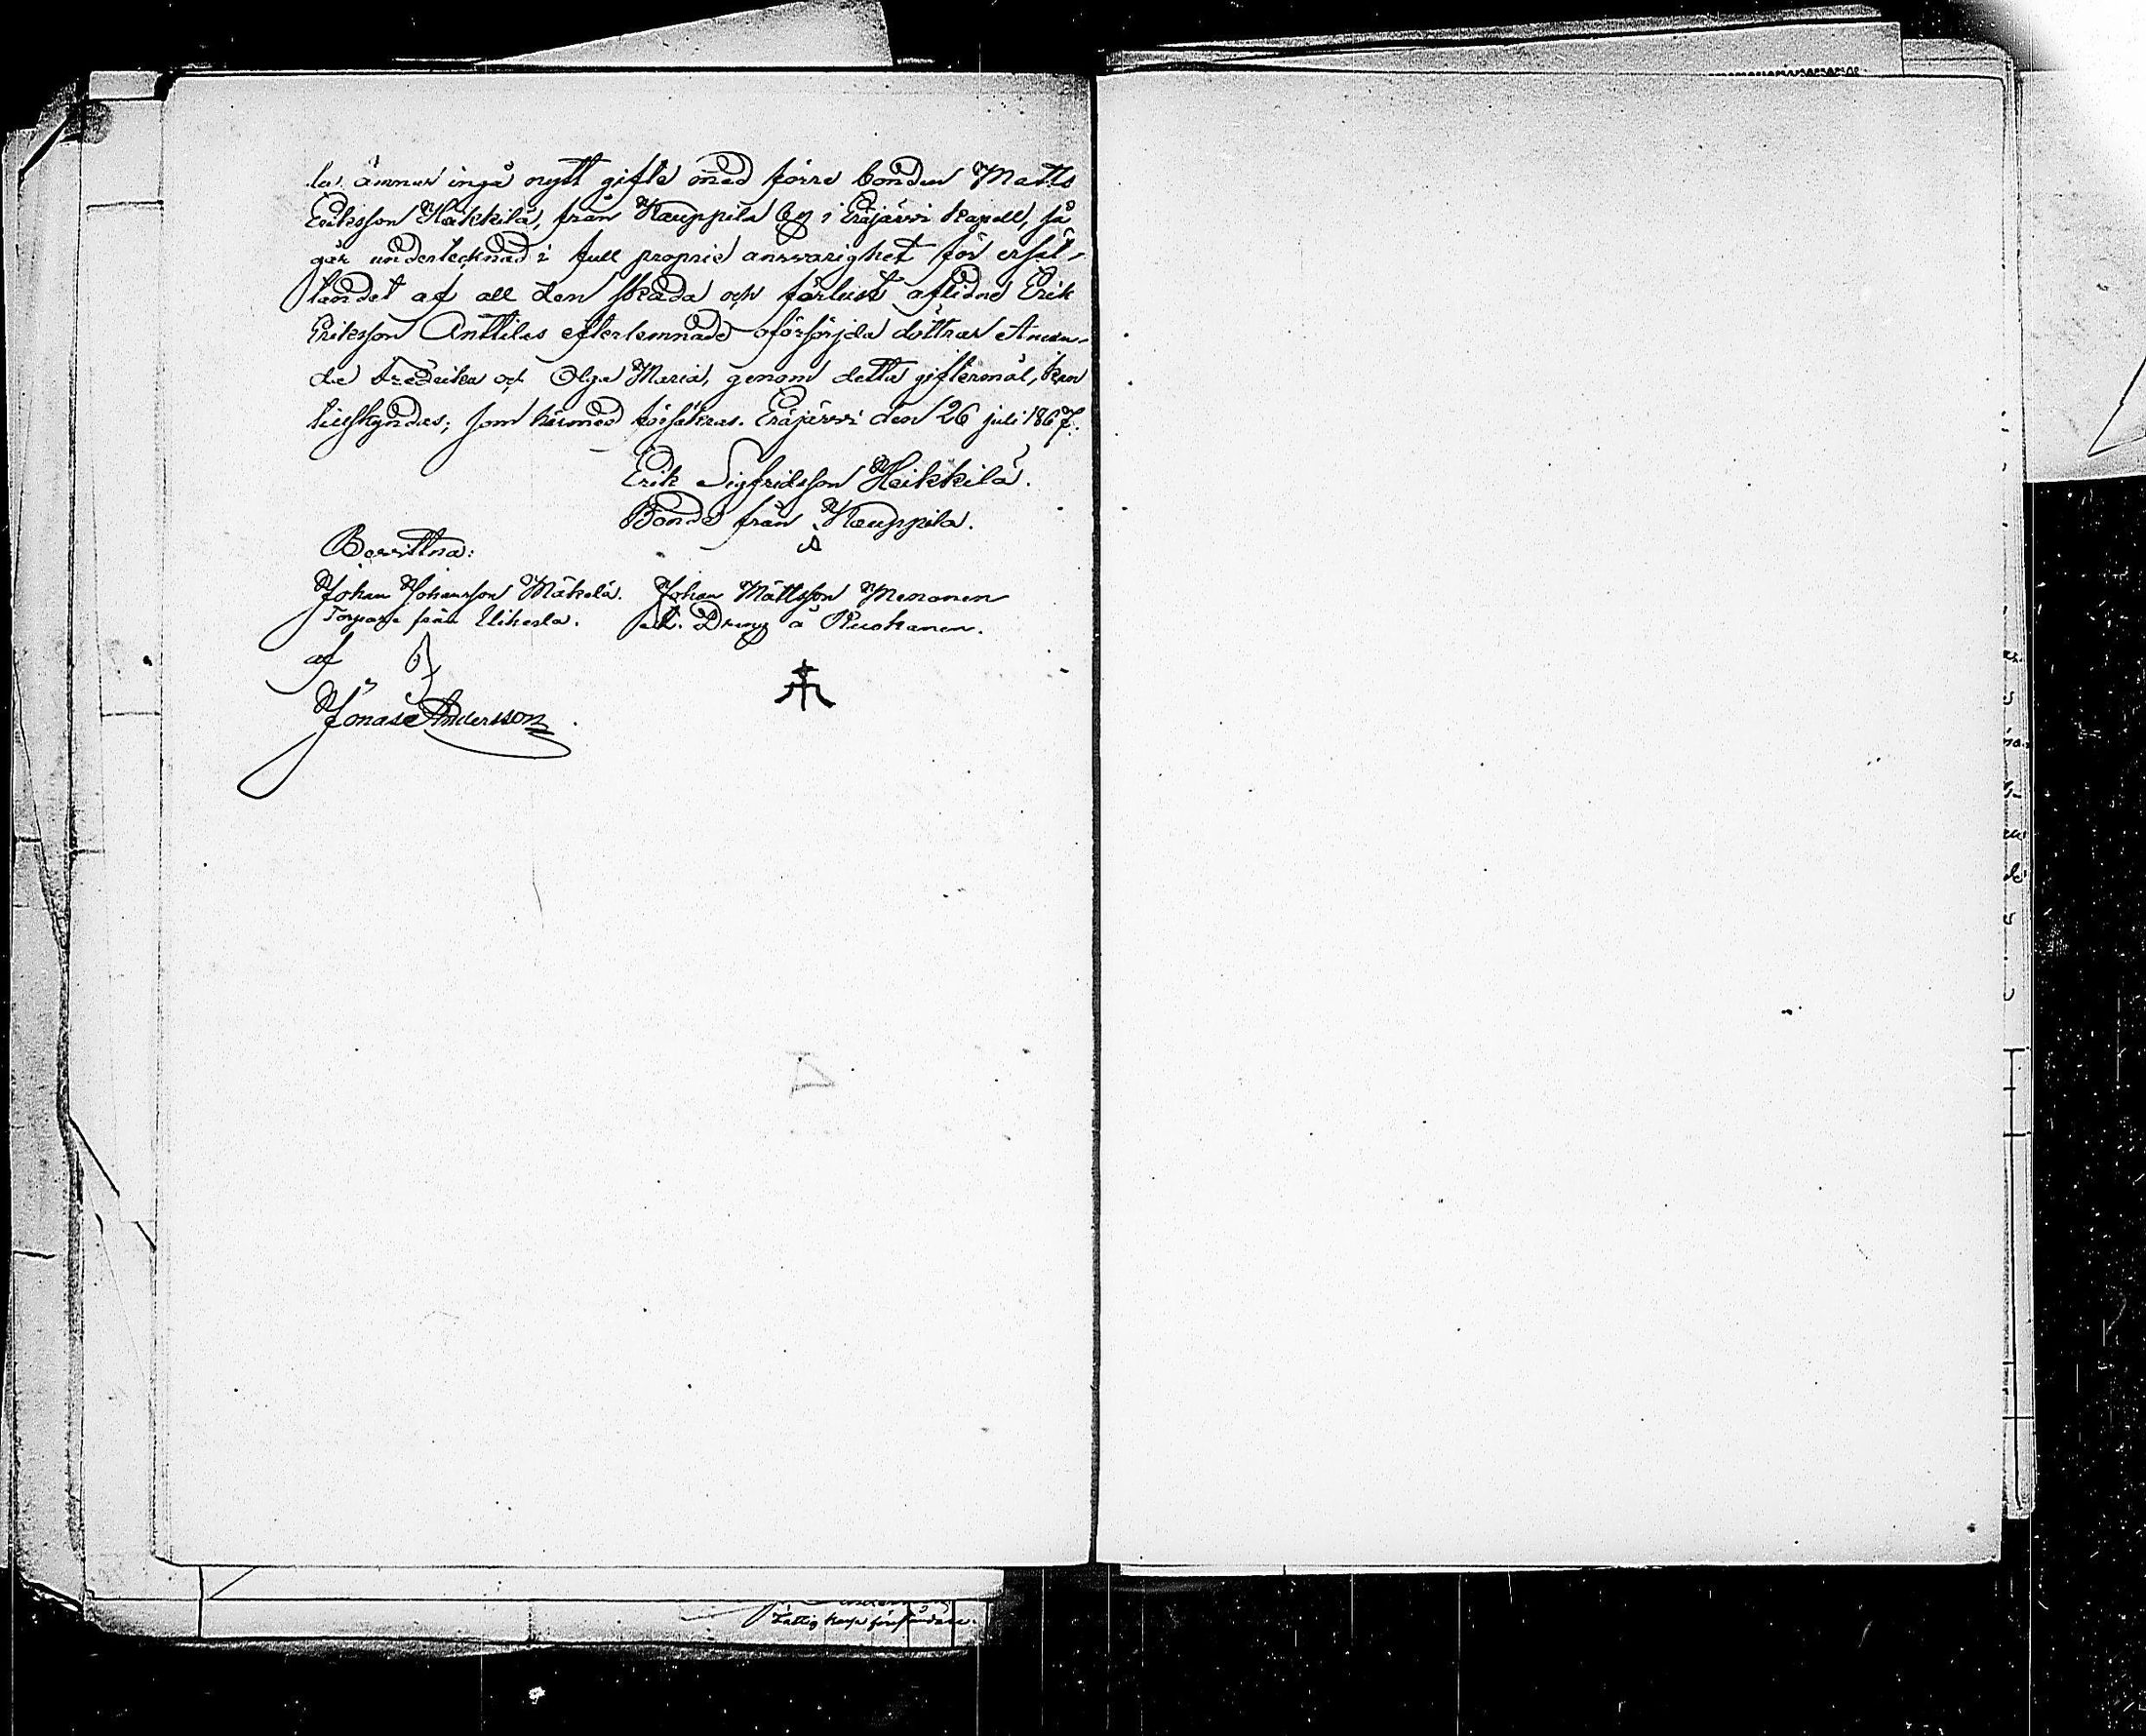 la ämnar ingå nytt gifte med förre bonden Matts
Eriksson Heikkilä, från Kauppila by i Eräjärvi kapell, så
går undertecknad i full proprie answarighet för ersät-
tandet af all den skada och förlust aflidne Erik
Eriksson Anttilas efterlemnade oförsörjda döttrar Aman-
da Fredrika och Olga Maria, genom detta giftermål, kan
tillskyndas; som härmed försäkras. Eräjärvi den 26 juli 1867.
Erik Sigfridsson Heikkilä.
Bonde från Kauppila.
Bevittna:
Johan Johansson Mäkelä. Johan Mattsson Mananen
Torpare från Uiherla. Dreng å Ruokanen.
af
Jonas Andersson